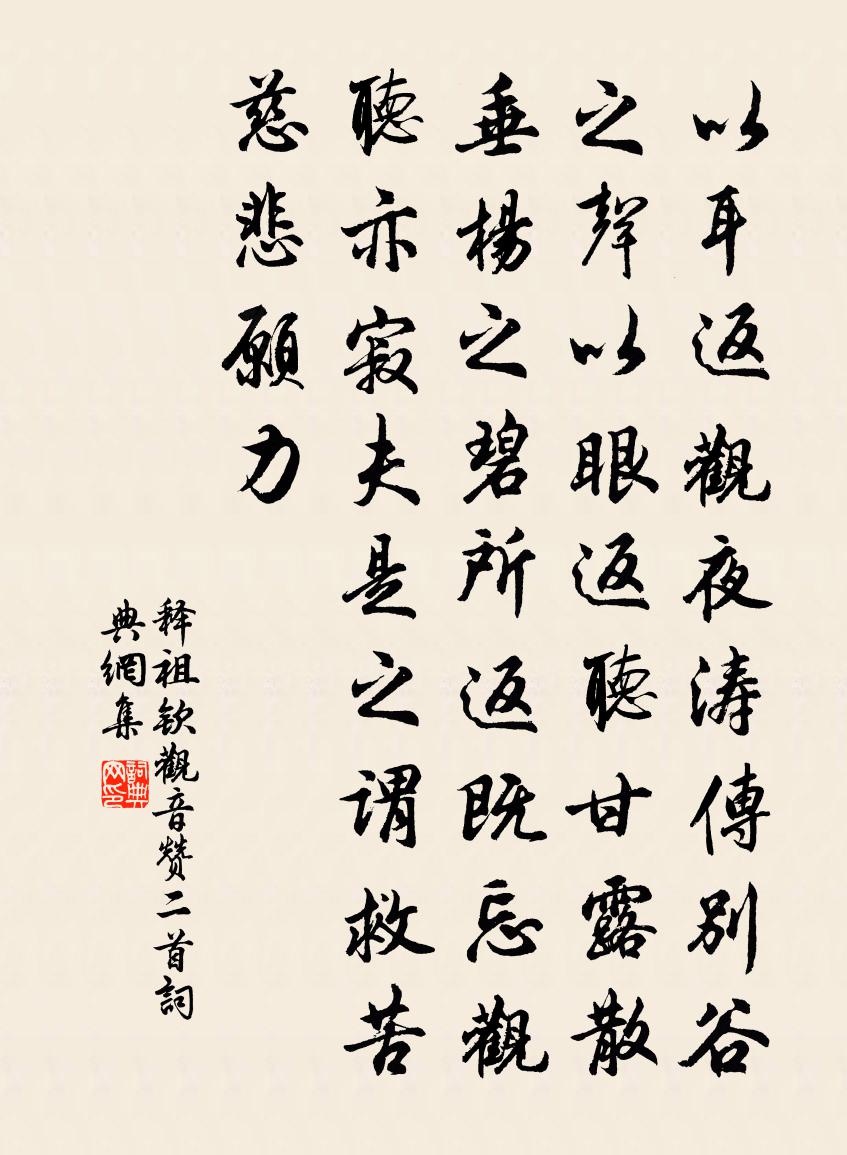 以耳返觀夜濤傳別谷
之聲以眼返聽甘露散
垂楊之碧所返既忘觀
聽亦寂夫是之謂救苦
慈悲願力
释祖欽觀音赞二首詞
典網集
詞典網印